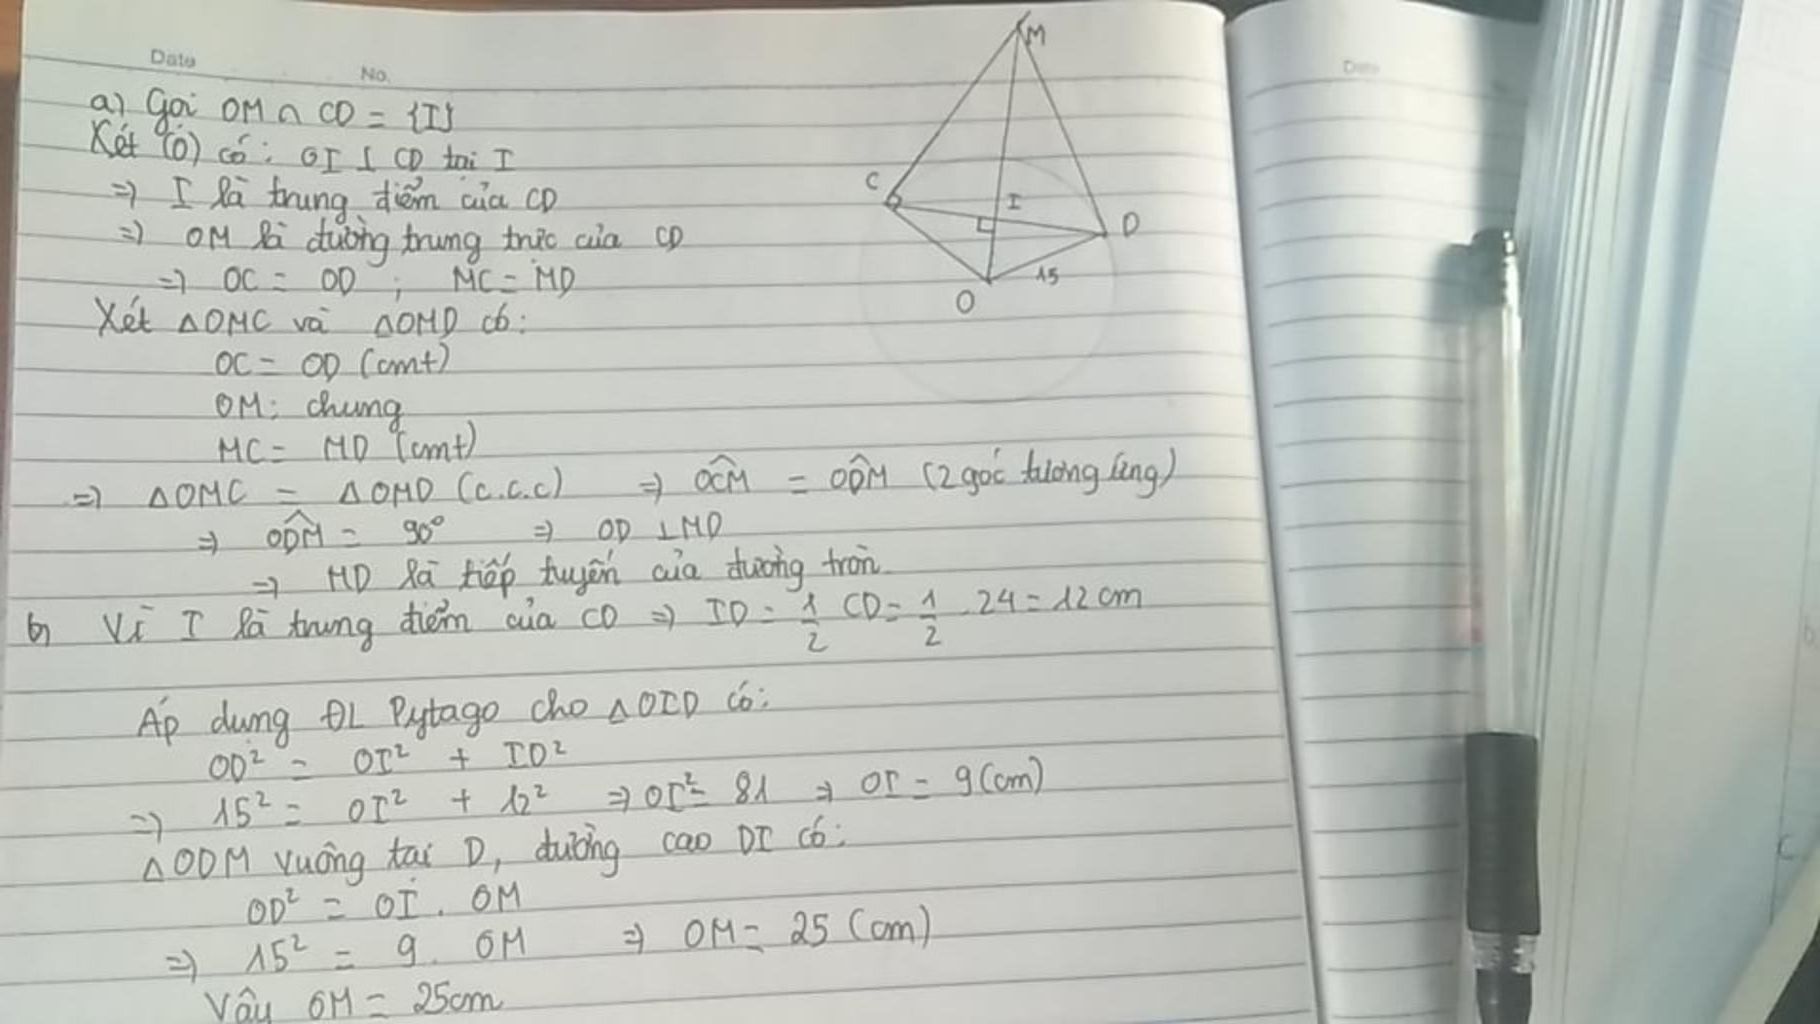 Date
No.
a) Gọi OM ∩ CD = {I}
Xét (O) có: OI ⊥ CD tại I
=> I là trung điểm của CD
=> OM là đường trung trực của CD
=> OC = OD ; MC = MD
Xét ΔOMC và ΔOMD có:
OC = OD (cmt)
OM: chung
MC = MD (cmt)
=> ΔOMC = ΔOMD (c.c.c) => OĈM = OD̂M (2 góc tương ứng)
=> OD̂M = 90° => OD ⊥ MD
=> MD là tiếp tuyến của đường tròn.
b) Vì I là trung điểm của CD => ID = 1/2 CD = 1/2 . 24 = 12 cm
Áp dụng ĐL Pytago cho ΔOID có:
OD² = OI² + ID²
=> 15² = OI² + 12² => OI² = 81 => OI = 9 (cm)
ΔODM vuông tại D, đường cao DI có:
OD² = OI . OM
=> 15² = 9 . OM => OM = 25 (cm)
Vậy OM = 25cm
M
C
I
D
15
O
Date